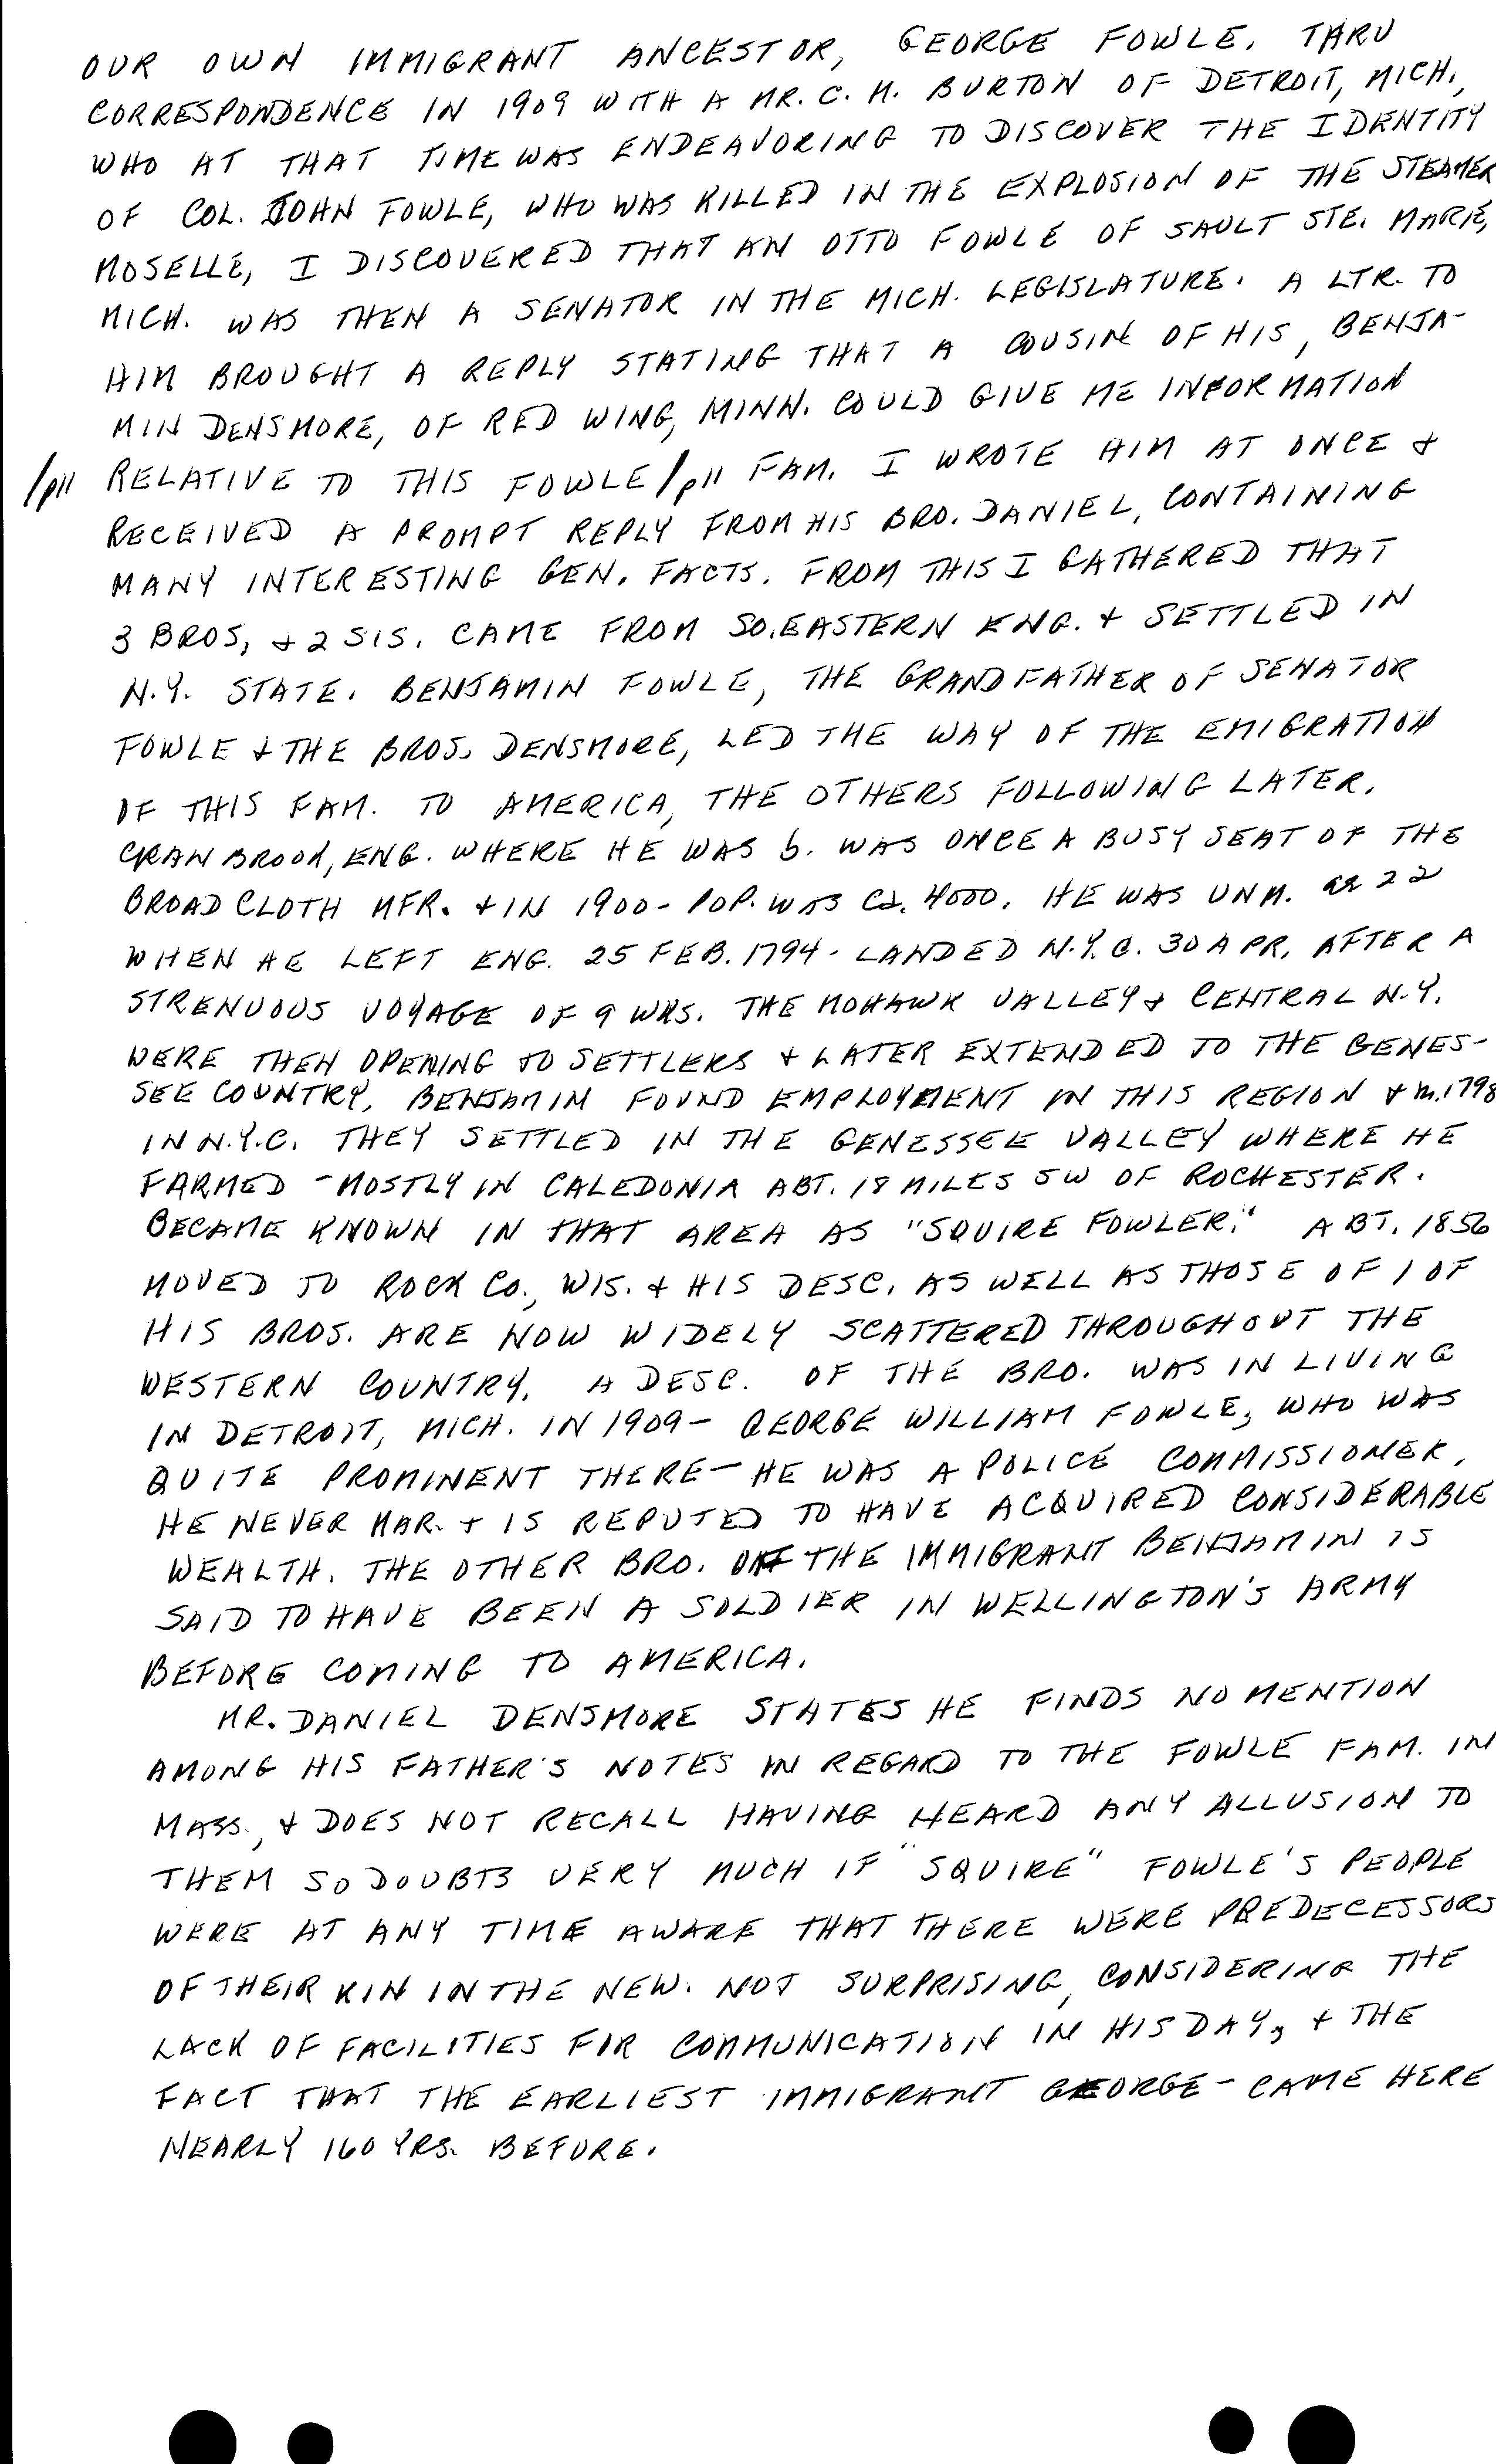 OUR OWN IMMIGRANT ANCESTOR, GEORGE FOWLE. THRU
CORRESPONDENCE IN 1909 WITH A MR. C. M. BURTON OF DETROIT, MICH.,
WHO AT THAT TIME WAS ENDEAVORING TO DISCOVER THE IDENTITY
OF COL. JOHN FOWLE, WHO WAS KILLED IN THE EXPLOSION OF THE STEAMER
MOSELLE, I DISCOVERED THAT AN OTTO FOWLE OF SAULT STE. MARIE,
MICH. WAS THEN A SENATOR IN THE MICH. LEGISLATURE. A LTR. TO
HIM BROUGHT A REPLY STATING THAT A COUSIN OF HIS, BENJA-
MIN DENSMORE, OF RED WING, MINN. COULD GIVE ME INFORMATION
/p11 RELATIVE TO THIS FOWLE /p11 FAM. I WROTE HIM AT ONCE &
RECEIVED A PROMPT REPLY FROM HIS BRO. DANIEL, CONTAINING
MANY INTERESTING GEN. FACTS. FROM THIS I GATHERED THAT
3 BROS, & 2 SIS. CAME FROM SO.EASTERN ENG. & SETTLED IN
N.Y. STATE. BENJAMIN FOWLE, THE GRANDFATHER OF SENATOR
FOWLE & THE BROS. DENSMORE, LED THE WAY OF THE EMIGRATION
OF THIS FAM. TO AMERICA, THE OTHERS FOLLOWING LATER.
CRANBROOK, ENG. WHERE HE WAS b. WAS ONCE A BUSY SEAT OF THE
BROADCLOTH MFR. & IN 1900- POP. WAS CA. 4000. HE WAS UNM. ae 22
WHEN HE LEFT ENG. 25 FEB. 1794- LANDED N.Y.C. 30 APR. AFTER A
STRENUOUS VOYAGE OF 9 WKS. THE MOHAWK VALLEY & CENTRAL N.Y.
WERE THEN OPENING TO SETTLERS & LATER EXTENDED TO THE GENES-
SEE COUNTRY. BENJAMIN FOUND EMPLOYMENT IN THIS REGION & m. 1798
IN N.Y.C. THEY SETTLED IN THE GENESSEE VALLEY WHERE HE
FARMED - MOSTLY IN CALEDONIA ABT. 18 MILES SW OF ROCHESTER.
BECAME KNOWN IN THAT AREA AS "SQUIRE FOWLER." ABT. 1856
MOVED TO ROCK CO., WIS. & HIS DESC. AS WELL AS THOSE OF 1 OF
HIS BROS. ARE NOW WIDELY SCATTERED THROUGHOUT THE
WESTERN COUNTRY. A DESC. OF THE BRO. WAS IN LIVING
IN DETROIT, MICH. IN 1909- GEORGE WILLIAM FOWLE, WHO WAS
QUITE PROMINENT THERE - HE WAS A POLICE COMMISSIONER.
HE NEVER MAR. & IS REPUTED TO HAVE ACQUIRED CONSIDERABLE
WEALTH. THE OTHER BRO. OF THE IMMIGRANT BENJAMIN IS
SAID TO HAVE BEEN A SOLDIER IN WELLINGTON'S ARMY
BEFORE COMING TO AMERICA.
MR. DANIEL DENSMORE STATES HE FINDS NO MENTION
AMONG HIS FATHER'S NOTES IN REGARD TO THE FOWLE FAM. IN
MASS., & DOES NOT RECALL HAVING HEARD ANY ALLUSION TO
THEM SO DOUBTS VERY MUCH IF "SQUIRE" FOWLE'S PEOPLE
WERE AT ANY TIME AWARE THAT THERE WERE PREDECESSORS
OF THEIR KIN IN THE NEW. NOT SURPRISING, CONSIDERING THE
LACK OF FACILITIES FOR COMMUNICATION IN HIS DAY, & THE
FACT THAT THE EARLIEST IMMIGRANT GEORGE - CAME HERE
NEARLY 160 YRS. BEFORE.